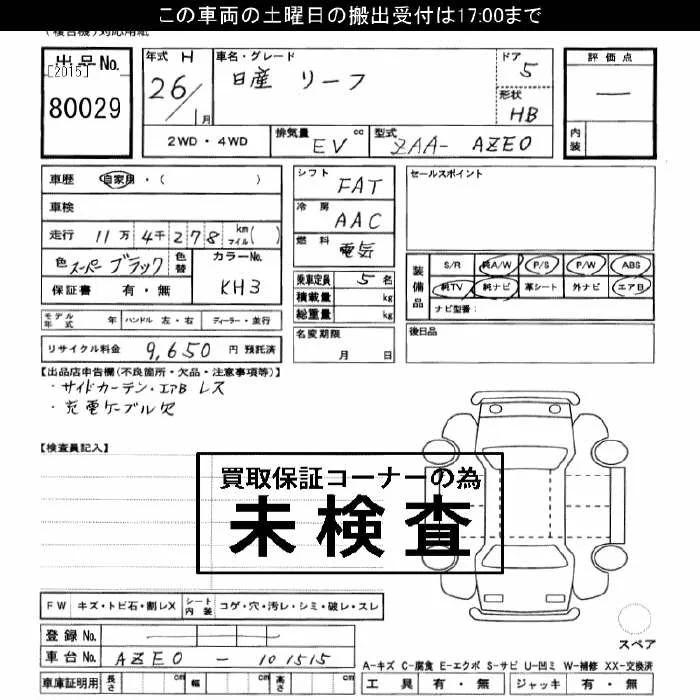 この車両の土曜日の搬出受付は17:00まで
(複合機)対応用紙
出品No.
[2015]
80029
年式 H
26/1月
車名・グレード
日産 リーフ
ドア
5
形状
HB
評価点
—
内装
2WD・4WD
排気量 EV cc
型式 ZAA- AZE0
車歴 自家用・( )
車検
走行 11万 4千 2 7 8 km マイル( )
色 スーパーブラック 色替
カラーNo.
KH3
保証書 有・無
シフト FAT
冷房 AAC
燃料 電気
乗車定員 5 名
積載量 kg
総重量 kg
名変期限
月 日
セールスポイント
装備品
S/R 純A/W P/S P/W ABS
純TV 純ナビ 革シート 外ナビ エアB
ナビ型番:
後日品
モデル年式 年 ハンドル 左・右 ディーラー・並行
リサイクル料金 9,650 円 預託済
【出品店申告欄(不良箇所・欠品・注意事項等)】
・サイドカーテン・エアB レス
・充電ケーブル欠
【検査員記入】
買取保証コーナーの為
未検査
FW キズ・トビ石・割レX シート内装 コゲ・穴・汚レ・シミ・破レ・スレ
登録No.
車台No. AZE0 - 101515
車庫証明用 長さ cm 幅 cm 高さ cm
スペア
A-キズ C-腐食 E-エクボ S-サビ U-凹ミ W-補修 XX-交換済
工具 有・無 ジャッキ 有・無